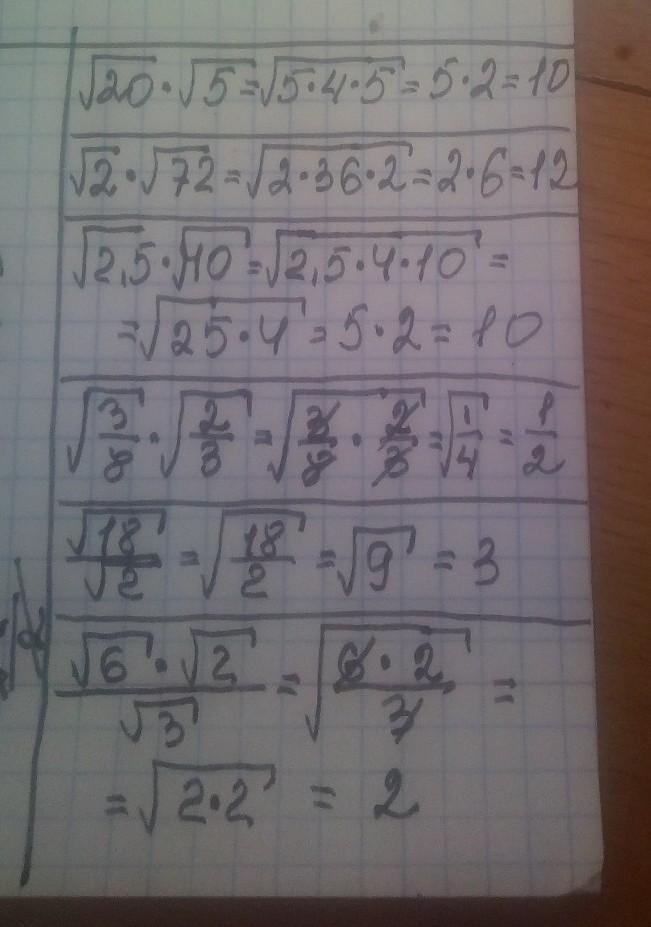 √20·√5=√5·4·5=5·2=10
√2·√72=√2·36·2=2·6=12
√2,5·√40=√2,5·4·10=
=√25·4=5·2=10
√3/8·√2/3=√3/8·2/3=√1/4=1/2
√18/√2=√18/2=√9=3
√6·√2/√3=√6·2/3=
=√2·2=2